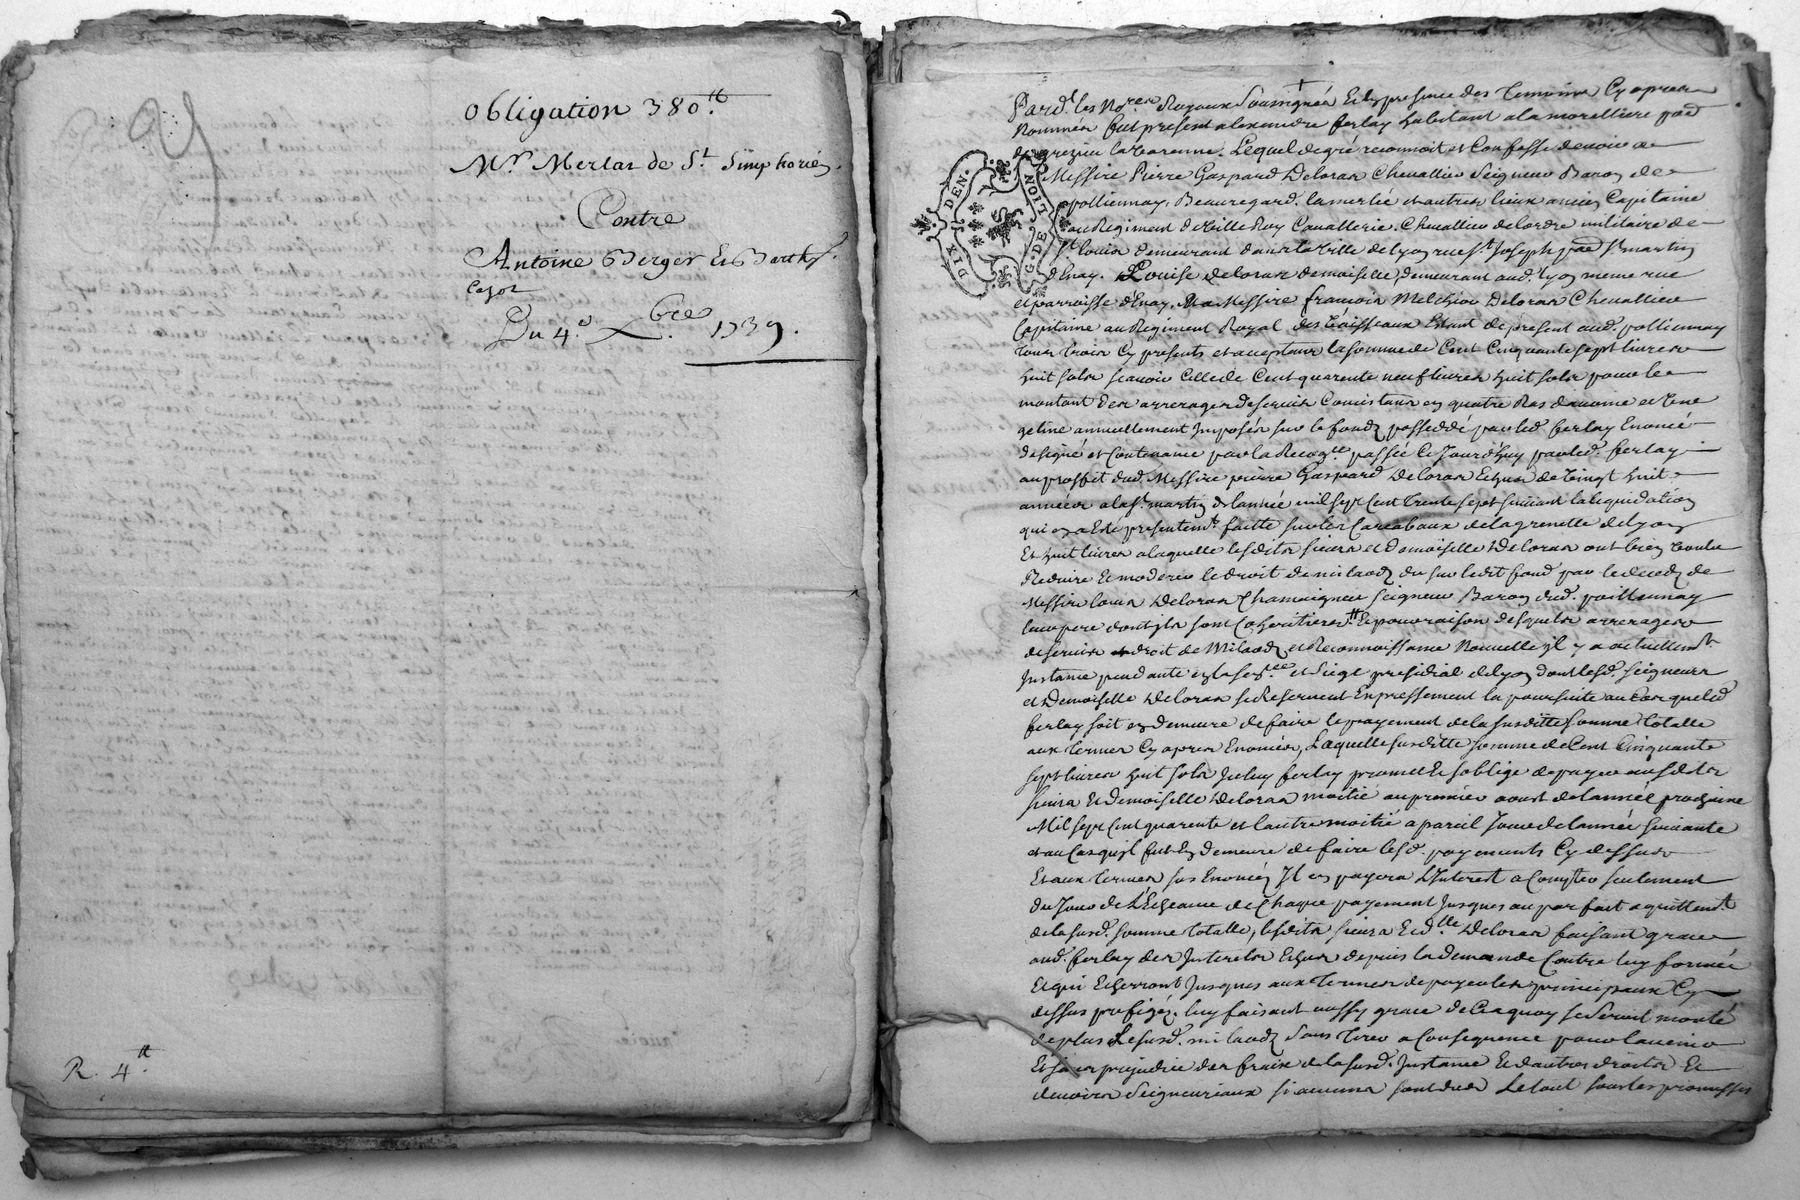 obligation 380.tt
Mr. Merlat de St. Simphorien.
Contre
Antoine Berger Et Barthy.
Cazot
Du 4.e Xbre 1739.
R. 4.tt
DIX DEN.
G. DE LION
Pard.t les No.res Royaux Soussignés Et En presence des temoins Cy apres
Nommés fut present alexandre ferlay habitant a la morelliere parr.
de grezieu la Varenne. Lequel de gré reconnoit et Confesse devoir a
Messire Pierre Gaspard Deloras Chevallier Seigneur Baron de
pollionnay, Beauregard, et autres lieux ancien Capitaine
au Regiment de Ville Roy Cavallerie, Chevallier de lordre militaire de
St. louis demeurant dans la Ville de Lyon rue St. Joseph parr. St. martin
d'Enay. Louise deloras demoiselle, demeurant aud. Lyon meme rue
et parroisse d'Enay. Messire francois Melchior Deloras Chevallier
Capitaine au Regiment Royal des Vaisseaux Estant de present aud. pollionnay
tous trois Cy presents et acceptant la somme de Cent Cinquante sept livres
huit sols scavoir Celle de Cent quarente neuf livres huit sols pour le
montant des arrerages de servis Consistans en quatre Ras d'avoine et Une
geline annuellement Imposés sur le fond possedé par led. ferlay Enoncé
designé et Contenancé par la Reco.ce passée Ce Jourd'huy par led. ferlay
au proffit dud. Messire pierre Gaspard Deloras Echus de Vingt huit
années a la St. martin de lannée mil sept Cent Trente sept suivant la liquidation
qui en a Eté presentem.t faitte sur les Carcabaux de la grenette de Lyon
Et huit livres a laquelle lesdits sieurs et Demoiselle Deloras ont bien Voulu
Reduire Et moderer le droit de milaods du sur ledit fond par le decedz de
Messire louis Deloras Chamaigneu seigneur Baron dud. pollionnay
leur pere dont ils sont Coheritiers. Et pour raison desquels arrerages
de servis droit de Milaods et Reconnoissance Nouvelle il y a actuellem.t
Instance pendante en la sen.cée et siege presidial de Lyon dont lesd. seigneurs
et Demoiselle Deloras se Reservent Expressement la poursuite au Cas que led.
ferlay soit en demeure de faire le payement de la susditte somme totalle
aux termes Cy apres Enoncés, Laquelle susditte somme de Cent Cinquante
sept livres huit sols Iceluy ferlay promet Et soblige de payer ausdits
sieurs Et Demoiselle Deloras moitié au premier aoust de lannée prochaine
Mil sept Cent quarente et lautre moitié a pareil Jour de lannée suivante
et au Cas qu'il fut En demeure de faire lesd. payements Cy dessus
Et aux termes sus Enoncés Il en payera L'Interest a Compter seulement
du Jour de L'Echeance de Chaque payement Jusques au parfait aquittem.t
de la susd. somme totalle, lesdits sieurs Et d.lle Deloras faisant grace
aud. ferlay des Interets Echus depuis la demande Contre luy formée
Et qui Echerront Jusques aux termes de payer les principaux Cy
dessus prefigés, luy faisant aussy grace de Ce a quoy se seroit monté
de plus Le susd. milaods sans tirer a Consequence pour lavenir
Et sans prejudice des fraix de la susd. Instance Et d'autres droits Et
devoirs seigneuriaux si aucuns sont dus Le tout sous les promesses